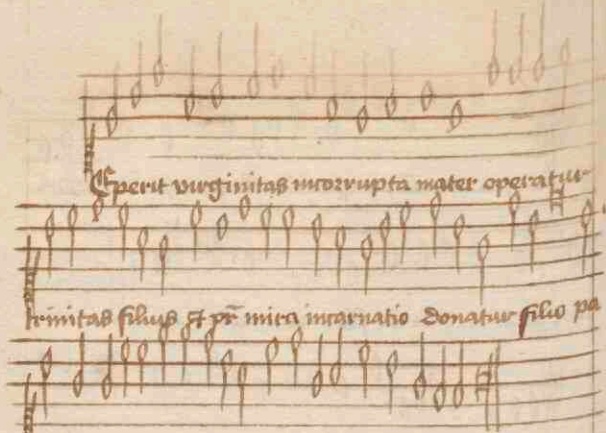 Peperit virginitas incorrupta mater operatur
trinitas filius et pr̄ mira incarnatio donatur filio pa